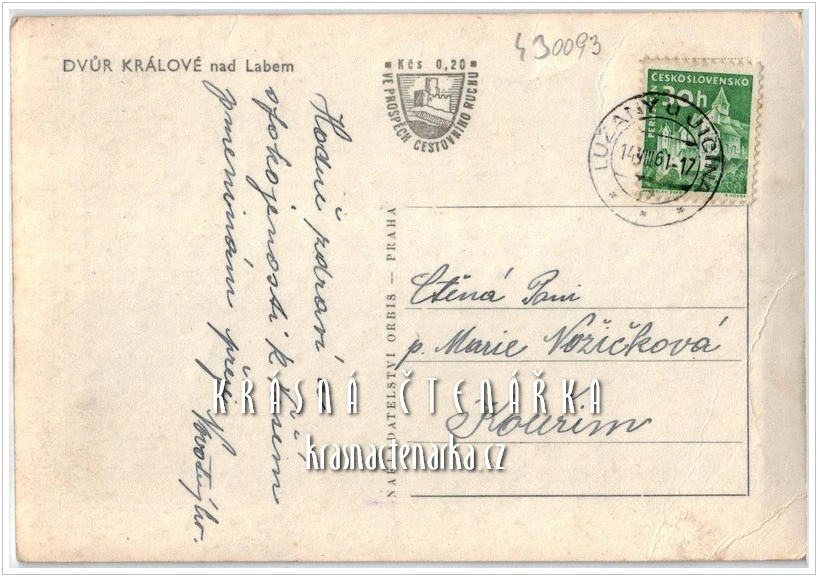 DVŮR KRÁLOVÉ nad Labem
Kčs 0,20
VE PROSPĚCH CESTOVNÍHO RUCHU
430093
ČESKOSLOVENSKO
30h
PERNŠTEJN
LUŽANY U JIČÍNA
14.VIII.61-17
Hodně zdraví a
spokojenosti k Vašim
jmeninám přeje
NAKLADATELSTVÍ ORBIS — PRAHA
Ctěná Paní
p. Marie Nožičková
Kouřim
KRÁSNÁ ČTENÁŘKA
krasnactenarka.cz